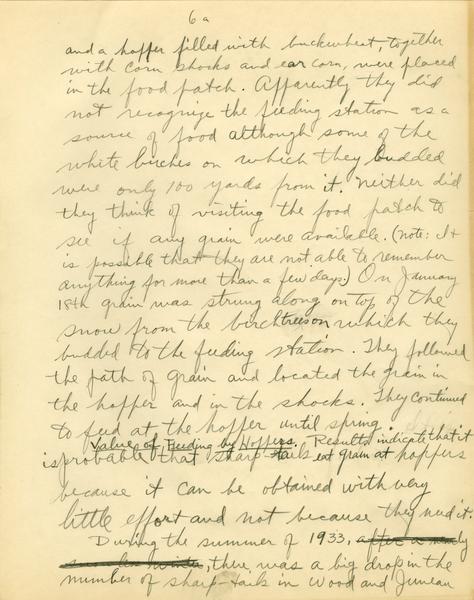 6a
and a hopper filled with buckwheat, together
with corn shocks and ear corn, were placed
in the food patch. Apparently they did
not recognize the feeding station as a
source of food although some of the
white birches on which they budded
were only 100 yards from it. Neither did
they think of visiting the food patch to
see if any grain were available. (Note: It
is possible that they are not able to remember
anything for more than a few days.) On January
18th grain was strung along on top of the
snow from the birch trees on which they
budded to the feeding station. They followed
the path of grain and located the grain in
the hopper and in the shocks. They continued
to feed at the hopper until spring.
Value of Feeding by Hoppers. Results indicate that it
is probable that sharp-tails eat grain at hoppers
because it can be obtained with very
little effort and not because they need it.
During the summer of 1933, after a
, there was a big drop in the
number of sharp-tails in Wood and Juneau